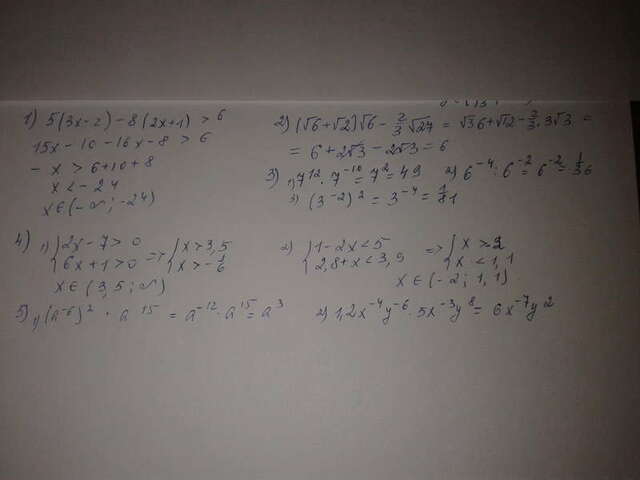 1) 5(3x-2)-8(2x+1) > 6
15x-10-16x-8 > 6
-x > 6+10+8
x < -24
x ∈ (-∞; -24)
2) (√6+√2)√6 - 2/3 √27 = √36+√12 - 2/3 · 3√3 =
= 6+2√3-2√3 = 6
3) 1) 7^12 · 7^-10 = 7^2 = 49 2) 6^-4 : 6^-2 = 6^-2 = 1/36
3) (3^-2)^2 = 3^-4 = 1/81
4) 1) { 2x-7 > 0 => { x > 3,5
{ 6x+1 > 0 { x > -1/6
x ∈ (3,5; ∞)
2) { 1-2x < 5 => { x > -2
{ 2,8+x < 3,9 { x < 1,1
x ∈ (-2; 1,1)
5) 1) (a^-6)^2 · a^15 = a^-12 · a^15 = a^3 2) 1,2x^-4 y^-6 · 5x^-3 y^8 = 6x^-7 y^2